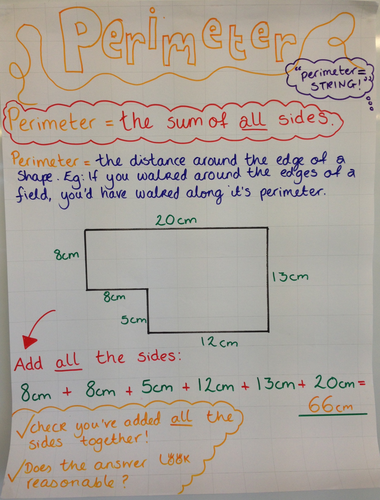 Perimeter
"perimeter=
STRING!"
Perimeter = the sum of all sides.
Perimeter = the distance around the edge of a
shape. Eg: If you walked around the edges of a
field, you'd have walked along it's perimeter.
20cm
8cm
8cm
13cm
5cm
12cm
Add all the sides:
8cm + 8cm + 5cm + 12cm + 13cm + 20cm =
66cm
✓check you've added all the
sides together!
✓Does the answer look
reasonable?